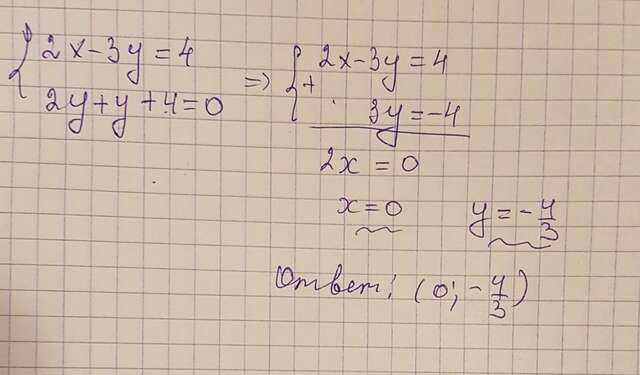 {2x-3y=4 => {2x-3y=4
2y+y+4=0 + 3y=-4
2x=0
x=0 y=-4/3
Ответ: (0; -4/3)